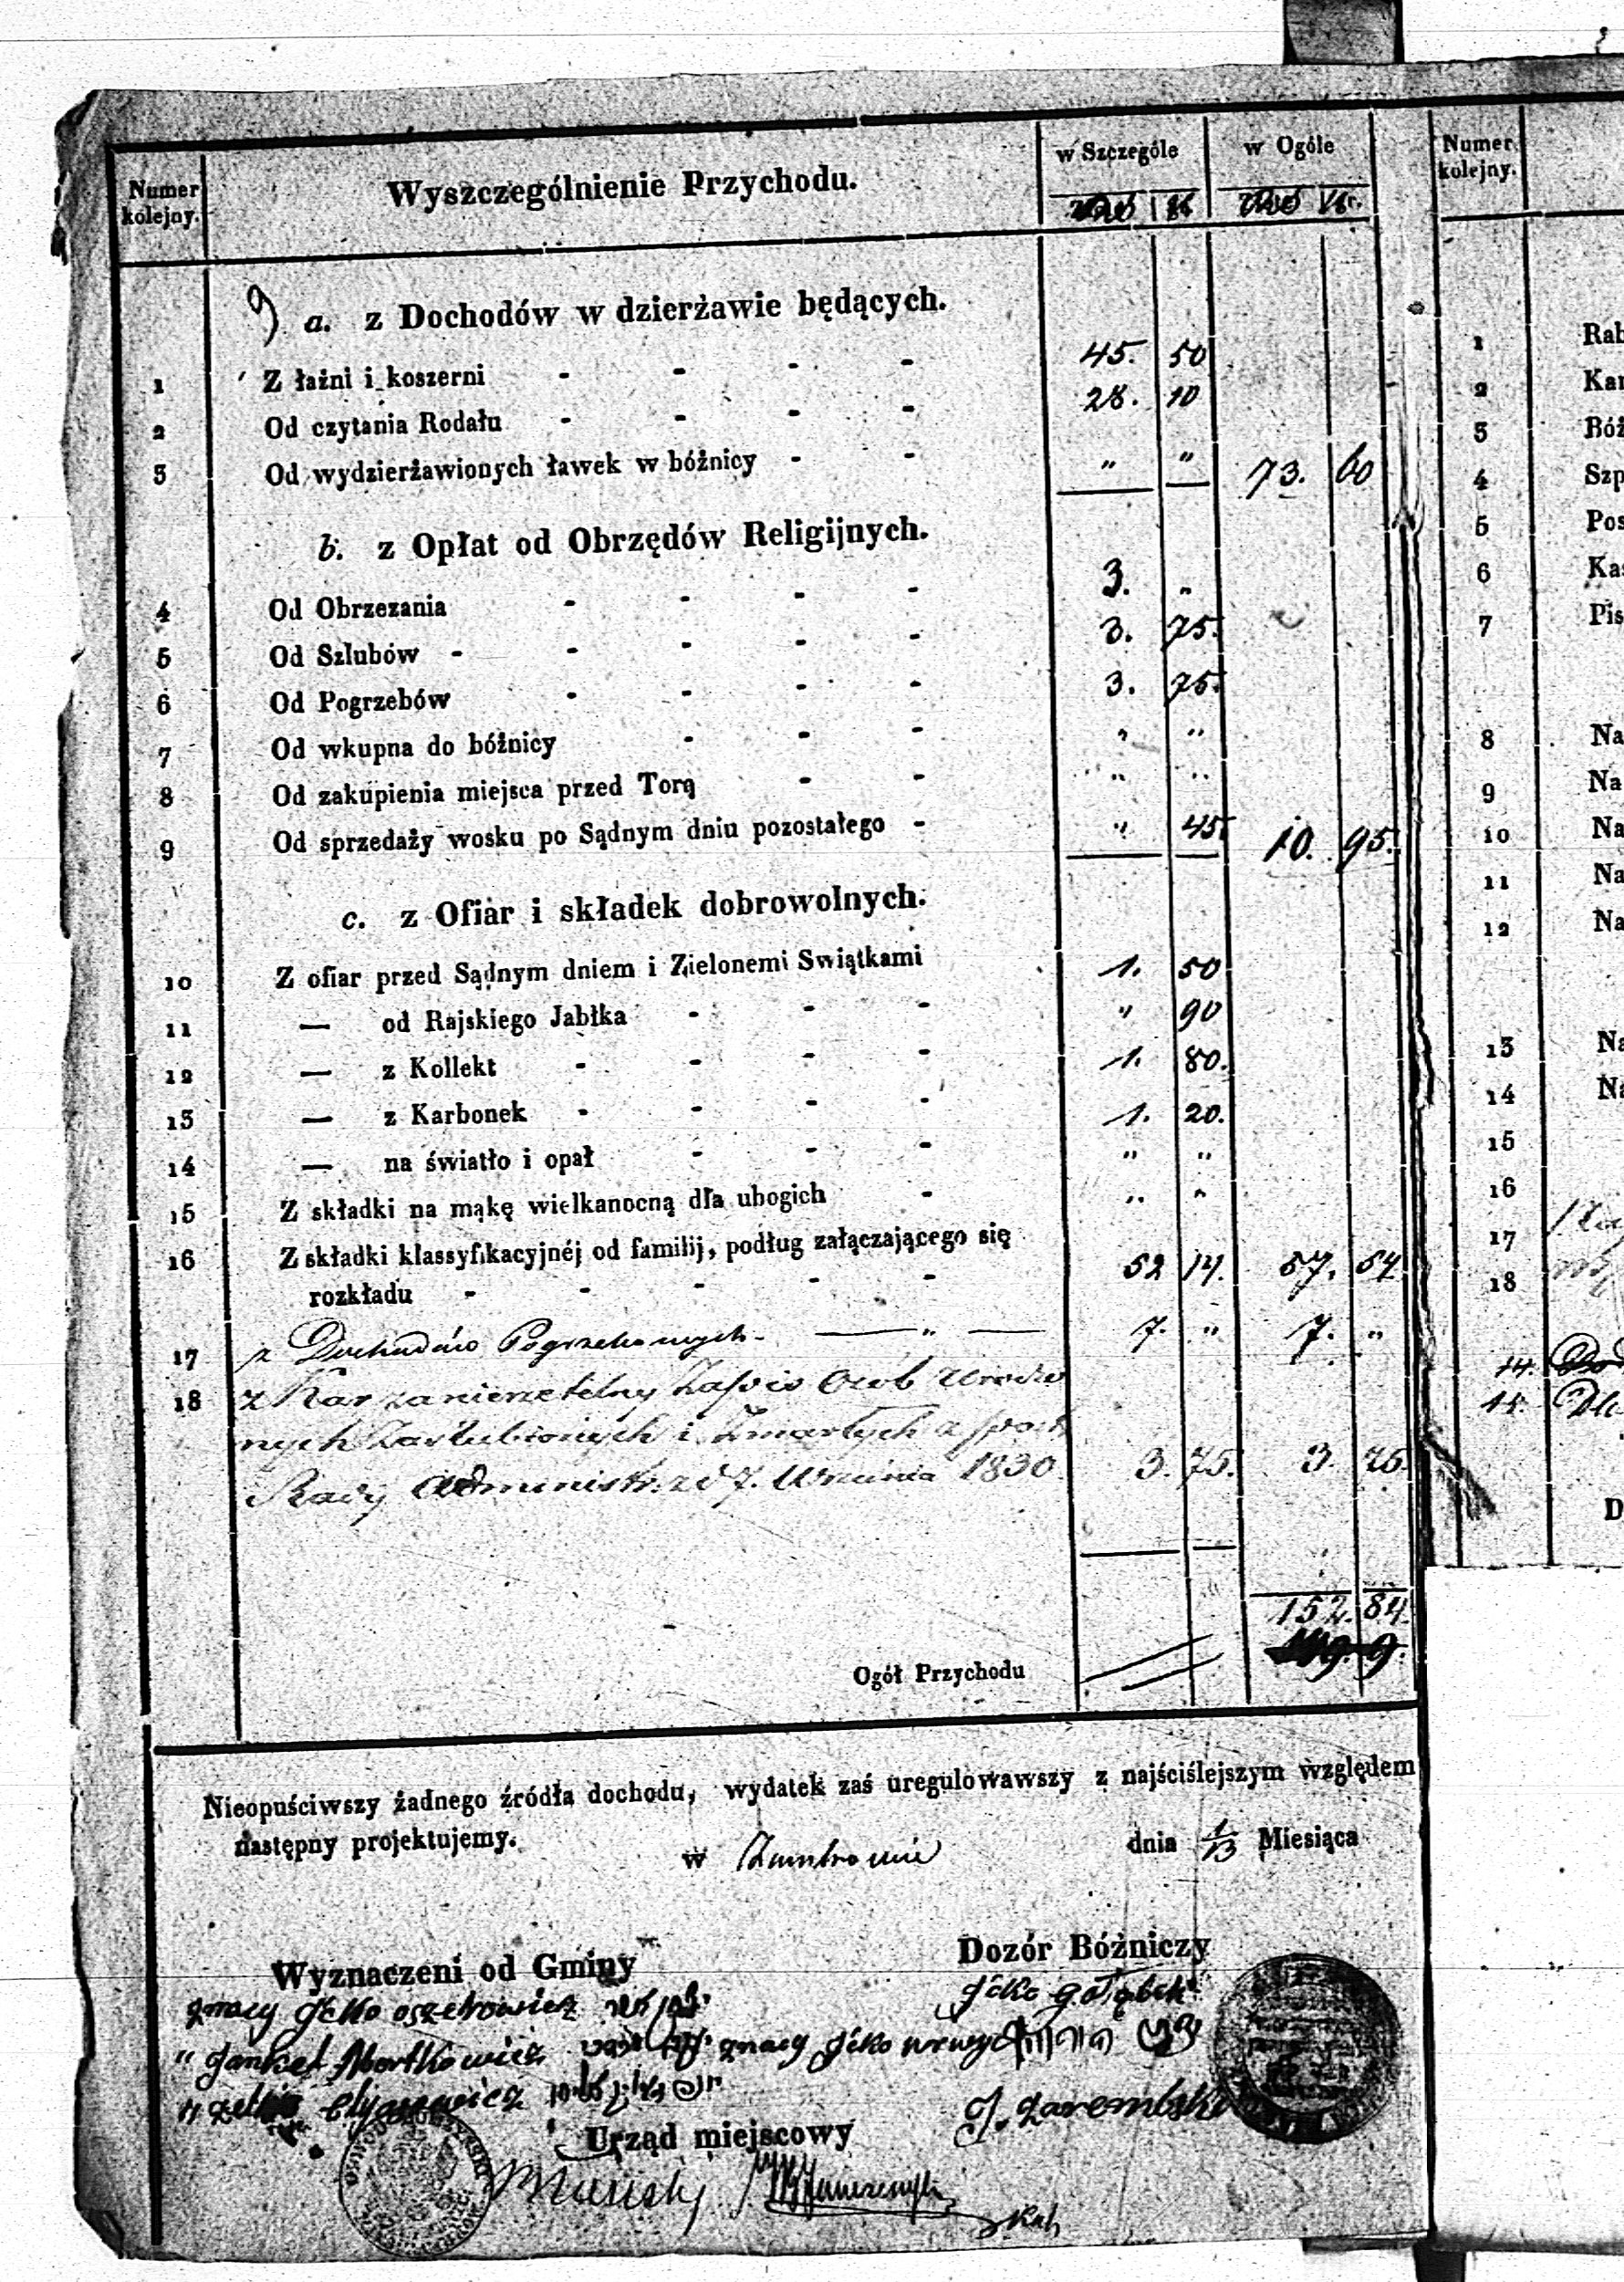 Numer kolejny. Wyszczególnienie Przychodu. w Szczególe w Ogóle Numer kolejny.
a. z Dochodów w dzierżawie będących.
1 Z łaźni i koszerni - - - - 45. 50
2 Od czytania Rodału - - - - 28. 10
3 Od wydzierżawionych ławek w bóżnicy - - " " 73. 60
b. z Opłat od Obrzędów Religijnych.
4 Od Obrzezania - - - - 3. "
5 Od Szlubów - - - - - 3. 75.
6 Od Pogrzebów - - - - 3. 75.
7 Od wkupna do bóźnicy - - - " "
8 Od zakupienia miejsca przed Torą - - " "
9 Od sprzedaży wosku po Sądnym dniu pozostałego - " 45 10. 95.
c. z Ofiar i składek dobrowolnych.
10 Z ofiar przed Sądnym dniem i Zielonemi Swiątkami 1. 50
11 — od Rajskiego Jabłka - - - " 90
12 — z Kollekt - - - - 1. 80.
13 — z Karbonek - - - - 1. 20.
14 — na światło i opał - - - " "
15 Z składki na mąkę wielkanocną dla ubogich - " "
16 Z składki klassyfikacyjnéj od familij, podług załączającego się
rozkładu - - - - - 52 14. 57. 54
17 z Dochodów Pogrzebowych — " — 7. " 7. "
18 z Kar za nierzetelny Zapis Osób Urodzo
nych Zaślubionych i Zmarłych z post.
Rady Administr. z d 7. Września 1830 3. 75. 3. 75.
152. 84.
Ogół Przychodu
Nieopuściwszy żadnego źródła dochodu, wydatek zaś uregulowawszy z najściślejszym względem
następny projektujemy.
w Zambrowie dnia 1/13 Miesiąca
Wyznaczeni od Gminy Dozór Bóżniczy
znacy Icko Icko Gołąbek
" Jankel Abortkowicz znacy Icko
" Elijasiewicz J. Zarembski
Urząd miejscowy
1 Rab
2 Kar
3 Bóż
4 Szp
5 Pos
6 Kas
7 Pis
8 Na
9 Na
10 Na
11 Na
12 Na
13 Na
14 Na
15
16
17
18
14.
15.
D